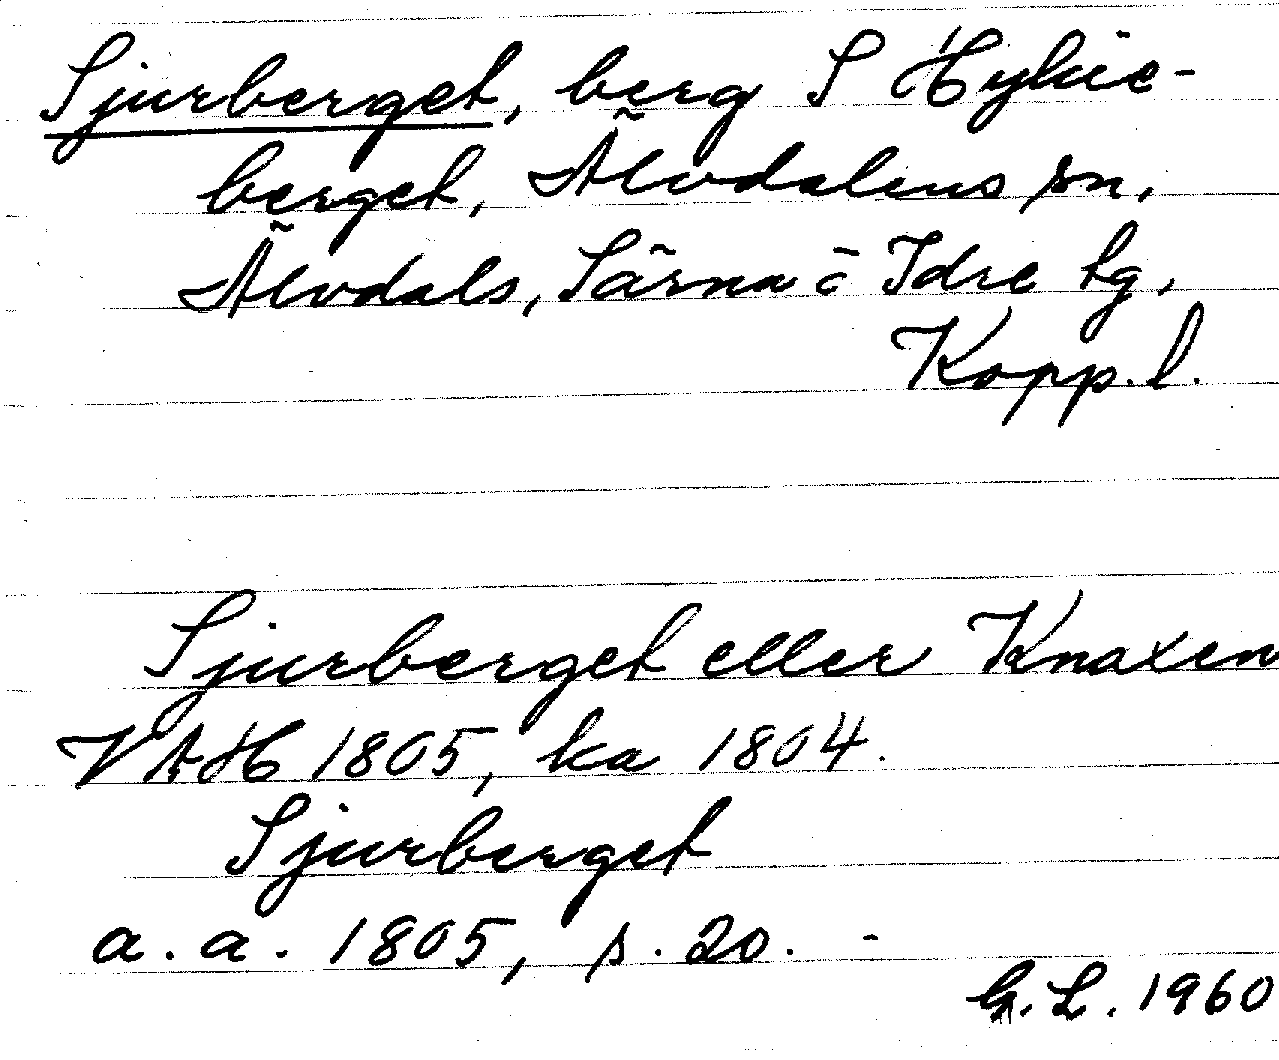 Sjurberget, berg S Hykie-
berget, Älvdalens sn,
Älvdals, Särna o Idre tg,
Kopp. l.
Sjurberget eller Knaxen
VAH 1805, ka 1804.
Sjurberget
a. a. 1805, s. 20. -
G. L. 1960